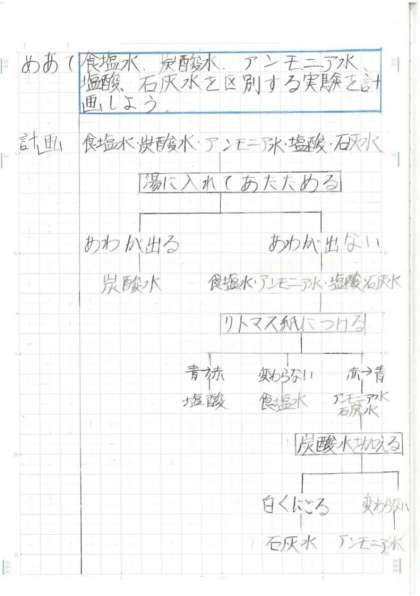 めあて 食塩水、炭酸水、アンモニア水、
塩酸、石灰水を区別する実験を計
画しよう。
計画 食塩水・炭酸水・アンモニア水・塩酸・石灰水
湯に入れてあたためる
あわが出る あわが出ない
炭酸水 食塩水・アンモニア水・塩酸・石灰水
リトマス紙につける
青→赤 変わらない 赤→青
塩酸 食塩水 アンモニア水
石灰水
炭酸水を加える
白くにごる 変わらない
石灰水 アンモニア水